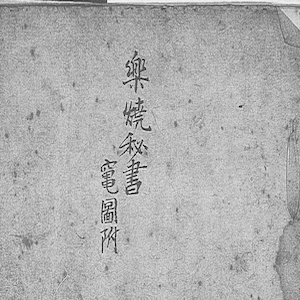 樂燒秘書
竃圖附